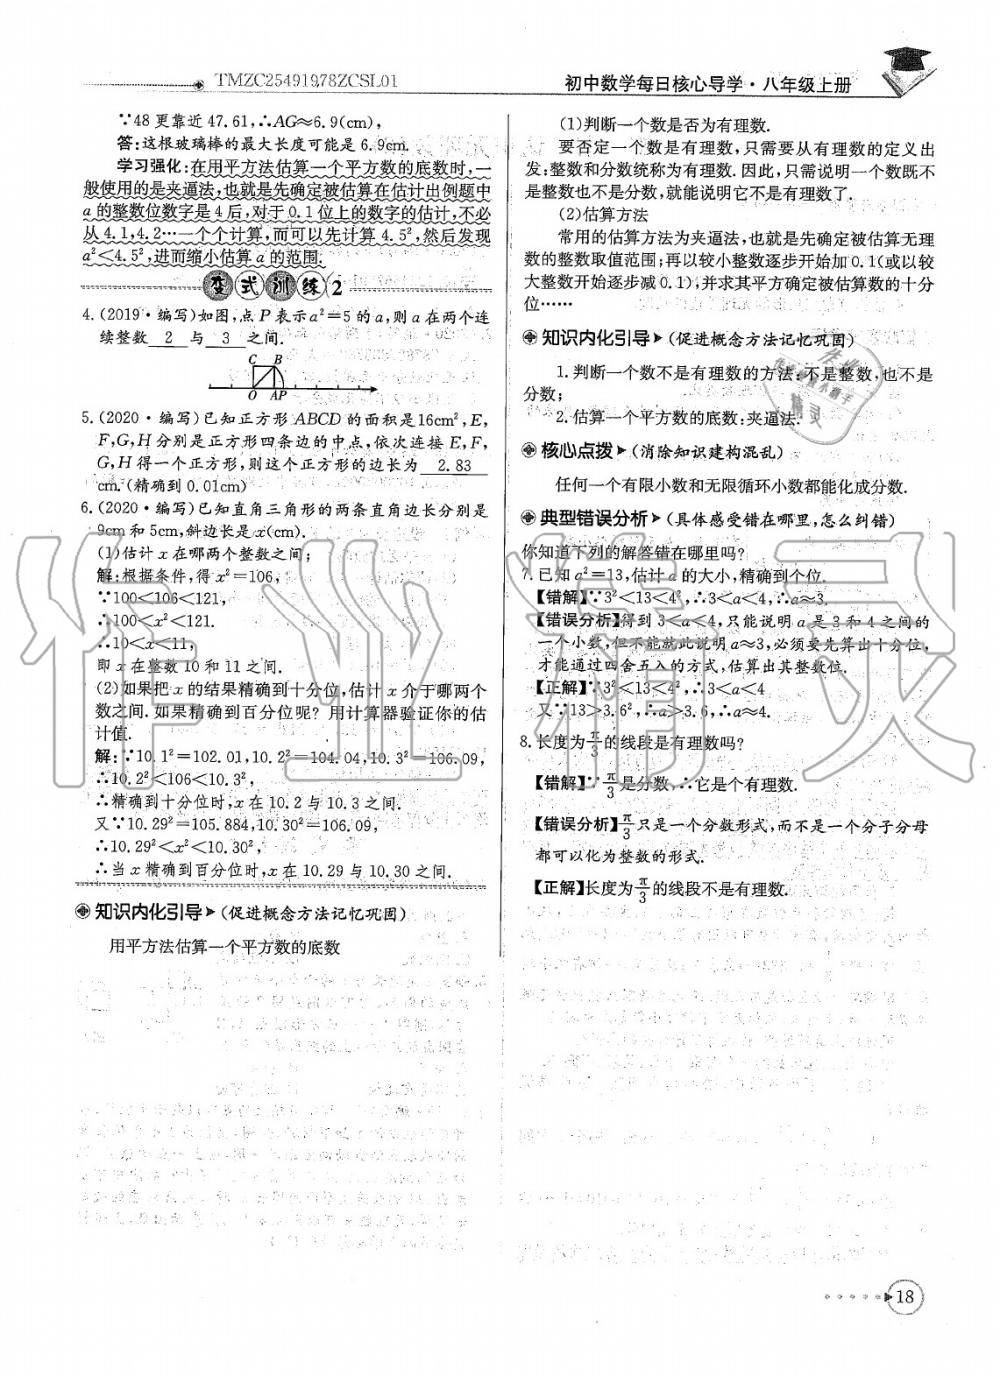 TMZC25491978ZCSL01
初中数学每日核心导学·八年级上册
∵48更靠近47.61,∴AG≈6.9(cm),
答:这根玻璃棒的最大长度可能是6.9cm.
学习强化:在用平方法估算一个平方数的底数时,一
般使用的是夹逼法,也就是先确定被估算在估计出例题中
a的整数位数字是4后,对于0.1位上的数字的估计,不必
从4.1,4.2…一个个计算,而可以先计算4.5²,然后发现
a²<4.5²,进而缩小估算a的范围.
变式训练2
4.(2019·编写)如图,点P表示a²=5的a,则a在两个连
续整数 2 与 3 之间.
C B
O A P
5.(2020·编写)已知正方形ABCD的面积是16cm²,E,
F,G,H分别是正方形四条边的中点,依次连接E,F,
G,H得一个正方形,则这个正方形的边长为 2.83
cm.(精确到0.01cm)
6.(2020·编写)已知直角三角形的两条直角边长分别是
9cm和5cm,斜边长是x(cm).
(1)估计x在哪两个整数之间;
解:根据条件,得x²=106,
∵100<106<121,
∴100<x²<121.
∴10<x<11,
即x在整数10和11之间.
(2)如果把x的结果精确到十分位,估计x介于哪两个
数之间.如果精确到百分位呢?用计算器验证你的估
计值.
解:∵10.1²=102.01,10.2²=104.04,10.3²=106.09,
∴10.2²<106<10.3²,
∴精确到十分位时,x在10.2与10.3之间.
又∵10.29²=105.884,10.30²=106.09,
∴10.29²<x²<10.30²,
∴当x精确到百分位时,x在10.29与10.30之间.
知识内化引导(促进概念方法记忆巩固)
用平方法估算一个平方数的底数
(1)判断一个数是否为有理数.
要否定一个数是有理数,只需要从有理数的定义出
发;整数和分数统称为有理数.因此,只需说明一个数既不
是整数也不是分数,就能说明它不是有理数了.
(2)估算方法
常用的估算方法为夹逼法,也就是先确定被估算无理
数的整数取值范围;再以较小整数逐步开始加0.1(或以较
大整数开始逐步减0.1),并求其平方确定被估算数的十分
位……
知识内化引导(促进概念方法记忆巩固)
1.判断一个数不是有理数的方法:不是整数,也不是
分数;
2.估算一个平方数的底数:夹逼法.
核心点拨(消除知识建构混乱)
任何一个有限小数和无限循环小数都能化成分数.
典型错误分析(具体感受错在哪里,怎么纠错)
你知道下列的解答错在哪里吗?
7.已知a²=13,估计a的大小,精确到个位.
【错解】∵3²<13<4²,∴3<a<4,∴a≈3.
【错误分析】得到3<a<4,只能说明a是3和4之间的
一个小数,但不能就此说明a≈3,必须要先算出十分位,
才能通过四舍五入的方式,估算出其整数位.
【正解】∵3²<13<4²,∴3<a<4
又∵13>3.6²,∴a>3.6,∴a≈4.
8.长度为π/3的线段是有理数吗?
【错解】∵π/3是分数,∴它是个有理数.
【错误分析】π/3只是一个分数形式,而不是一个分子分母
都可以化为整数的形式.
【正解】长度为π/3的线段不是有理数.
作业精灵
18